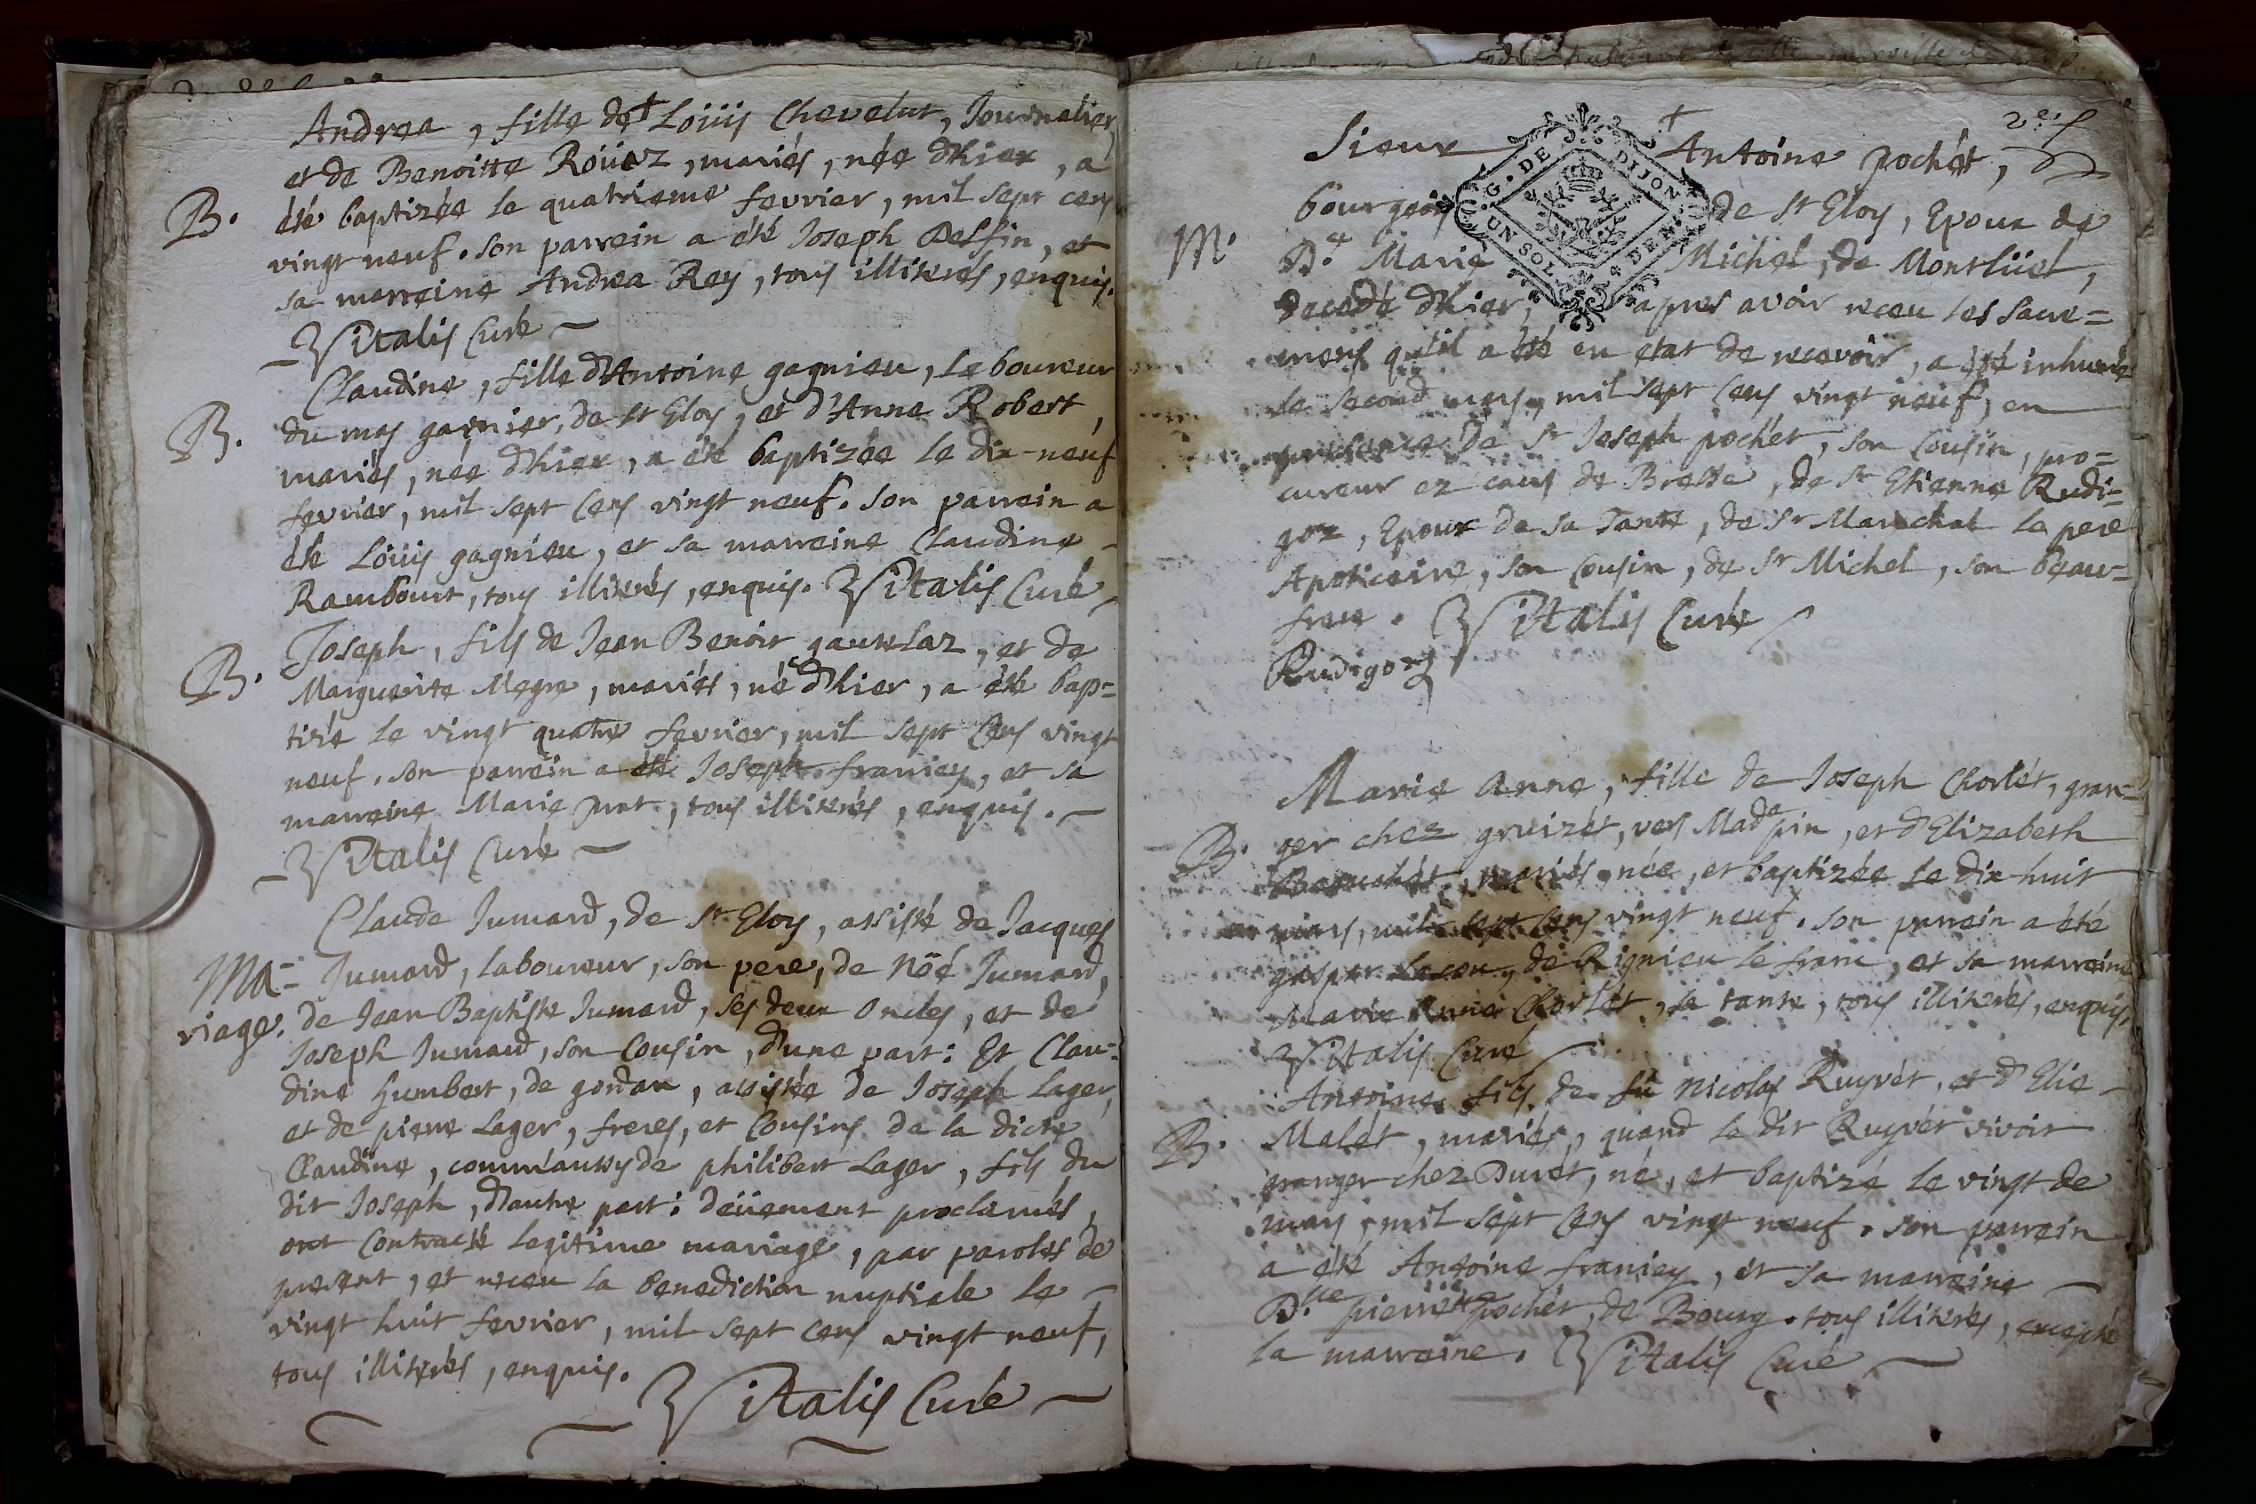 Andrea, fille de Loüis Chevelut, Journalier,
et de Benoitte Roüez, mariés, née d'hier, a
B. été baptizée le quatrieme fevrier, mil sept cens
vingt neuf. son parrein a été Joseph Delfin, et
sa marreine Andrea Rey, tous illiterés, enquis.
Vitalis Curé
Claudine, fille d'Antoine gagnieu, laboureur
B. du mas garnier, de st Eloy, et d'Anne Robert,
mariés, née d'hier, a été baptizée le dix-neuf
fevrier, mil sept cens vingt neuf. son parrein a
été Loüis gagnieu, et sa marreine Claudine
Rambourt, tous illiterés, enquis. Vitalis Curé
Joseph, fils de Jean Benoit gautelaz, et de
B. Marguerite Megre, mariés, né d'hier, a été bap=
tizé le vingt quatre fevrier, mil sept cens vingt
neuf. son parrein a été Joseph franiey, et sa
marreine Marie prat, tous illiterés, enquis.
Vitalis Curé
Claude Jumard, de st Eloy, assisté de Jacques
Ma= Jumard, laboureur, son pere, de Nöé Jumard,
riage. de Jean Baptiste Jumard, ses deux oncles, et de
Joseph Jumard, son Cousin, d'une part: Et Clau=
dine humbert, de gordan, assistée de Joseph Lager,
et de pierre Lager, freres, et Cousins de la dicte
Claudine, comm'aussy de philibert Lager, fils du
dit Joseph, d'autre part: deüement proclamés,
ont contracté legitime mariage, par paroles de
present, et receu la benediction nuptiale le
vingt huit fevrier, mil sept cens vingt neuf,
tous illiterés, enquis.
Vitalis Curé
G. DE DIJON
UN SOL
Sieur Antoine pochét,
bourgeois de st Eloy, Epoux de
M. D.e Marie Michel, de Montlüel,
decedé d'hier, apres avoir receu les sacre=
mens qu'il a été en etat de recevoir, a été inhumé
le second mars, mil sept cens vingt neuf, en
presence de sr Joseph pochét, son cousin, pro=
cureur ez cours de Bresse, de sr Etienne Rudi=
goz, Epoux de sa Tante, de sr Marechal le pere
Apoticaire, son cousin, de sr Michel, son beau=
frere. Vitalis Curé
Rudigoz
Marie Anne, fille de Joseph Chorlét, gran=
B. ger chez gruizét, vers Made pin, et d'Elizabeth
mariés, née, et baptizée le dix-huit
mars, mil sept cens vingt neuf. son parrein a été
gaspar de Rignieu le franc, et sa marreine
Marie Anne Chorlét, sa tante, tous illiterés, enquis.
Vitalis Curé
Antoine fils de fû Nicolas Ruyvét, et d'Elie
B. Malét, mariés, quand le dit Ruyvét vivoit
granger chez Durét, né, et baptizé le vingt de
mars, mil sept cens vingt neuf. son parrein
a été Antoine franiey, et sa marreine
D.lle pierrette pochét, de Bourg. tous illiterés, excepté
la marreine. Vitalis Curé